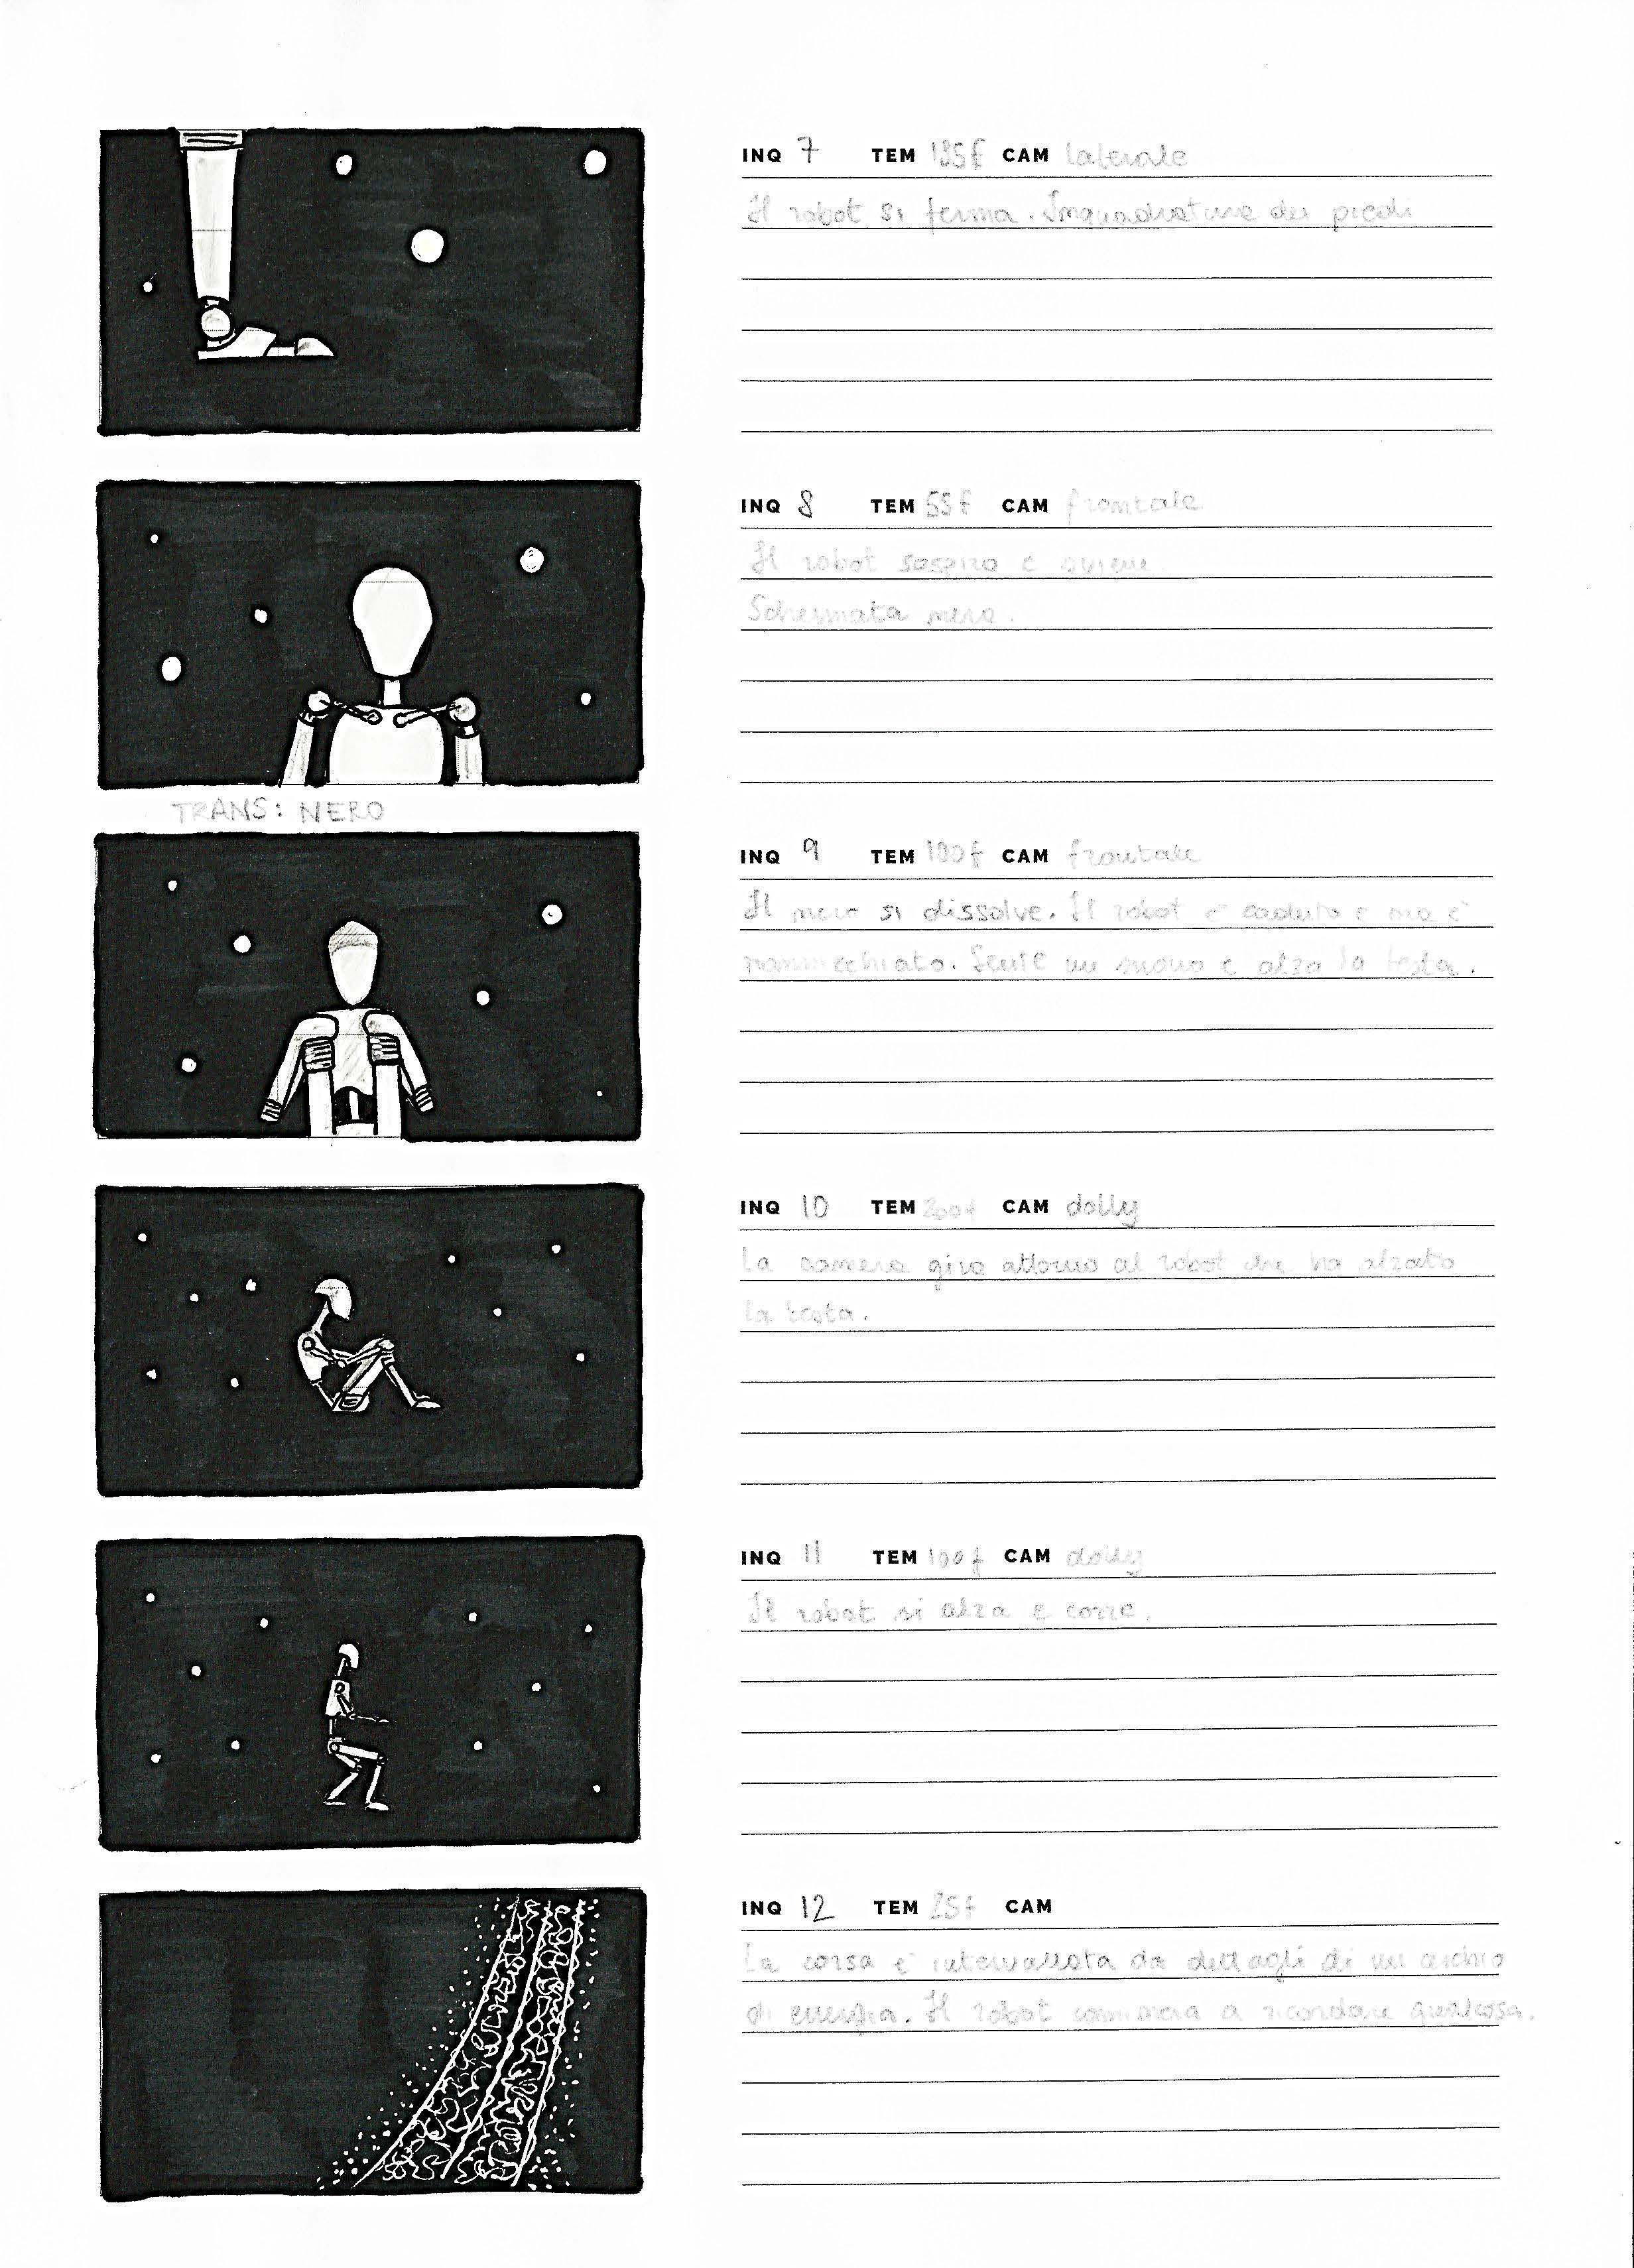 INQ 7 TEM 135f CAM laterale
Il robot si ferma. Inquadratura dei piedi
INQ 8 TEM 55f CAM frontale
Il robot sospira e sviene.
Schermata nera.
TRANS: NERO
INQ 9 TEM 100f CAM frontale
Il nero si dissolve. Il robot è caduto e ora è
rannicchiato. Sente un suono e alza la testa.
INQ 10 TEM 200f CAM dolly
La camera gira attorno al robot che ha alzato
la testa.
INQ 11 TEM 100f CAM dolly
Il robot si alza e corre.
INQ 12 TEM 25f CAM
La corsa è intervallata da dettagli di un cerchio
di energia. Il robot comincia a ricordare qualcosa.